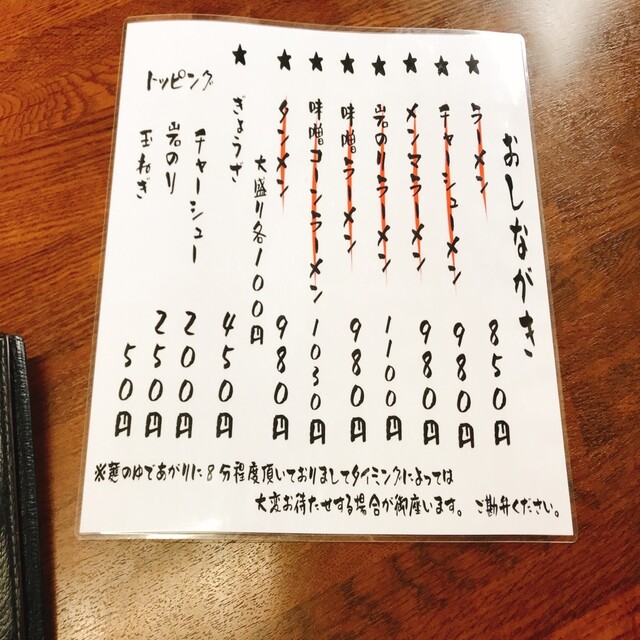 おしながき
★ ラーメン 850円
★ チャーシューメン 980円
★ メンマラーメン 980円
★ 岩のりラーメン 1100円
★ 味噌ラーメン 980円
★ 味噌コーンラーメン 1030円
★ タンメン 980円
大盛り各100円
★ ぎょうざ 450円
トッピング
チャーシュー 200円
岩のり 250円
玉ねぎ 50円
※麺のゆであがりに8分程度頂いておりましてタイミングによっては
大変お待たせする場合が御座います。ご勘弁ください。